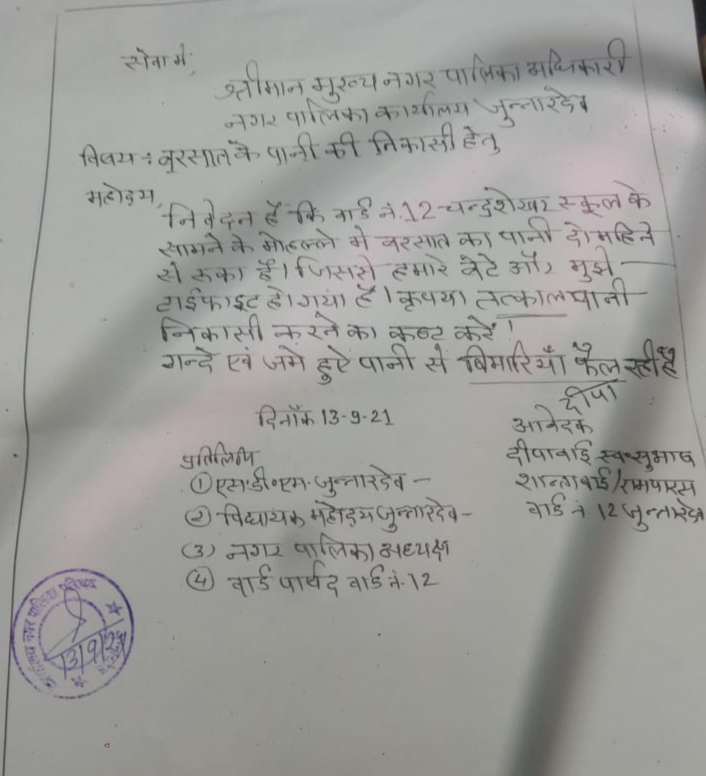 सेवा में,
श्रीमान मुख्य नगर पालिका अधिकारी
नगर पालिका कार्यालय जुन्नारदेव
विषय : बरसात के पानी की निकासी हेतु
महोदय,
निवेदन है कि वार्ड नं. 12 चन्द्रशेखर स्कूल के
सामने के मोहल्ले मे बरसात का पानी दो महिने
से रुका है। जिससे हमारे बेटे और मुझे
टाईफाइट हो गया है। कृपया तत्काल पानी
निकासी करने का कष्ट करें।
गन्दे एवं जमे हुए पानी से बिमारियाँ फैल रही है
दीपा
दिनाँक 13-9-21
आवेदक
दीपाबाई स्व. सुभाष
शान्ताबाई / रामपारस
वार्ड नं. 12 जुन्नारदेव
प्रतिलिपि
① एस.डी.एम. जुन्नारदेव -
② विधायक महोदय जुन्नारदेव -
(3) नगर पालिका अध्यक्ष
④ वार्ड पार्षद वार्ड नं. 12
नगर पालिका परिषद
13/9/21